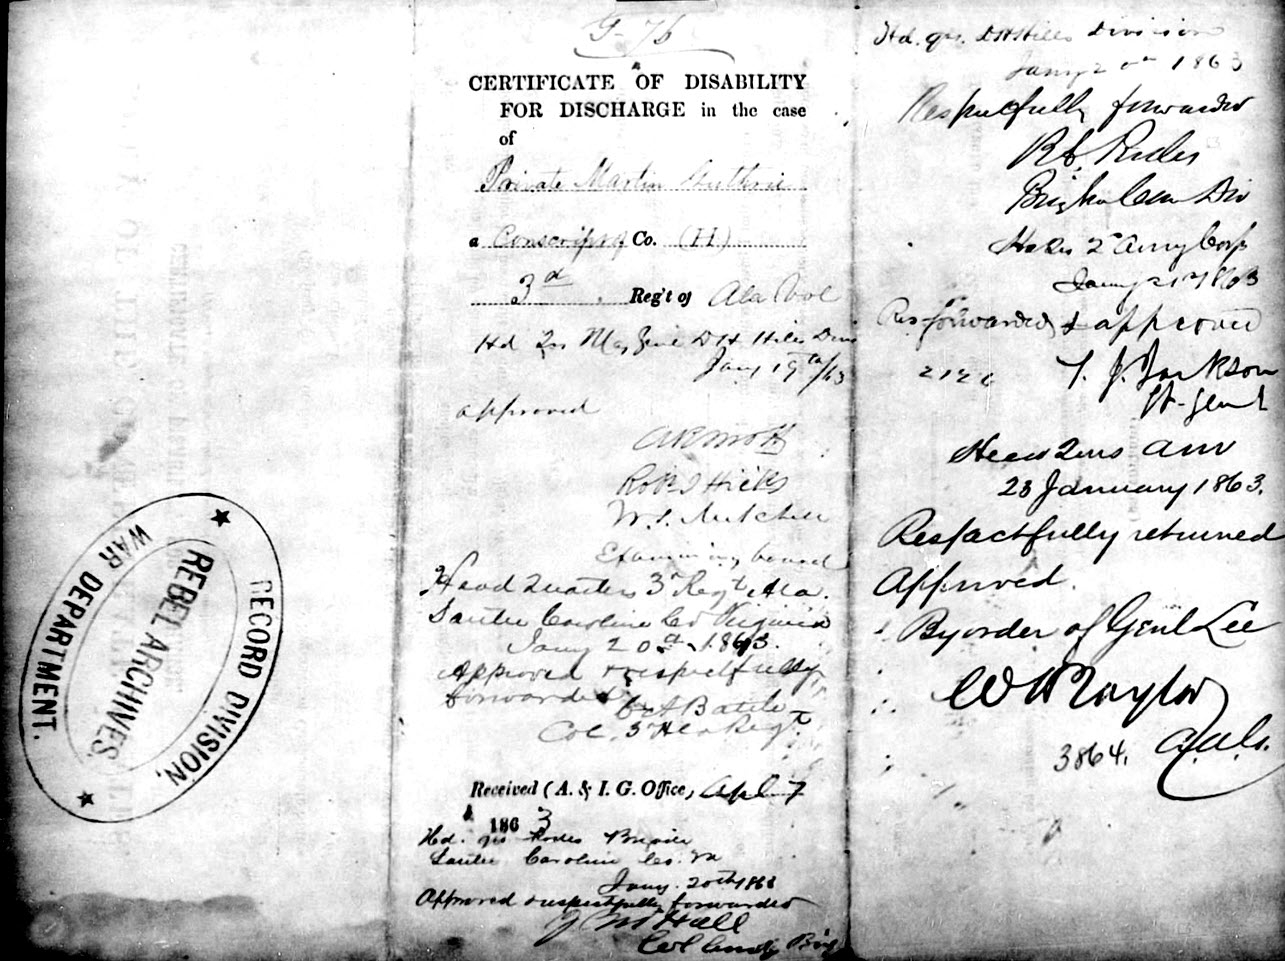 G-76
CERTIFICATE OF DISABILITY
FOR DISCHARGE in the case
of
Private Martin Guthrie
a Conscript, Co. (H)
3d Reg't of Ala Vol
Hd Qrs Maj Genl D H Hills Divn
Jany 19th/63
approved
Robt J Hicks
W. S. Mitchell
Examining board
Head Quarters 3r Regt Ala.
Santee Caroline Co Virginia
Jany 20th 1863.
Approved & respectfully
forwarded
C A Battle
Col. 3r Ala Regt
Received (A. & I. G. Office, Apl 7
1863
Hd. qrs Rodes Brigade
Santee Caroline Co. Va
Jany. 20th 1863
Approved & respectfully forwarded
Hall
Col Comdg Brig
Hd. qrs. D H Hills Division
Jany 20th 1863
Respectfully forwarded
R E Rodes
Brig Gen Com Div
Hdqrs 2d Army Corps
Jany 21st 1863
Res. forwarded & approved
T. J. Jackson
Lt-Genl
Head Qurs ANV
23 January 1863.
Respectfully returned
Approved.
By order of Genl Lee
W H Taylor
A.A.G.
3864.
RECORD DIVISION,
REBEL ARCHIVES.
WAR DEPARTMENT.